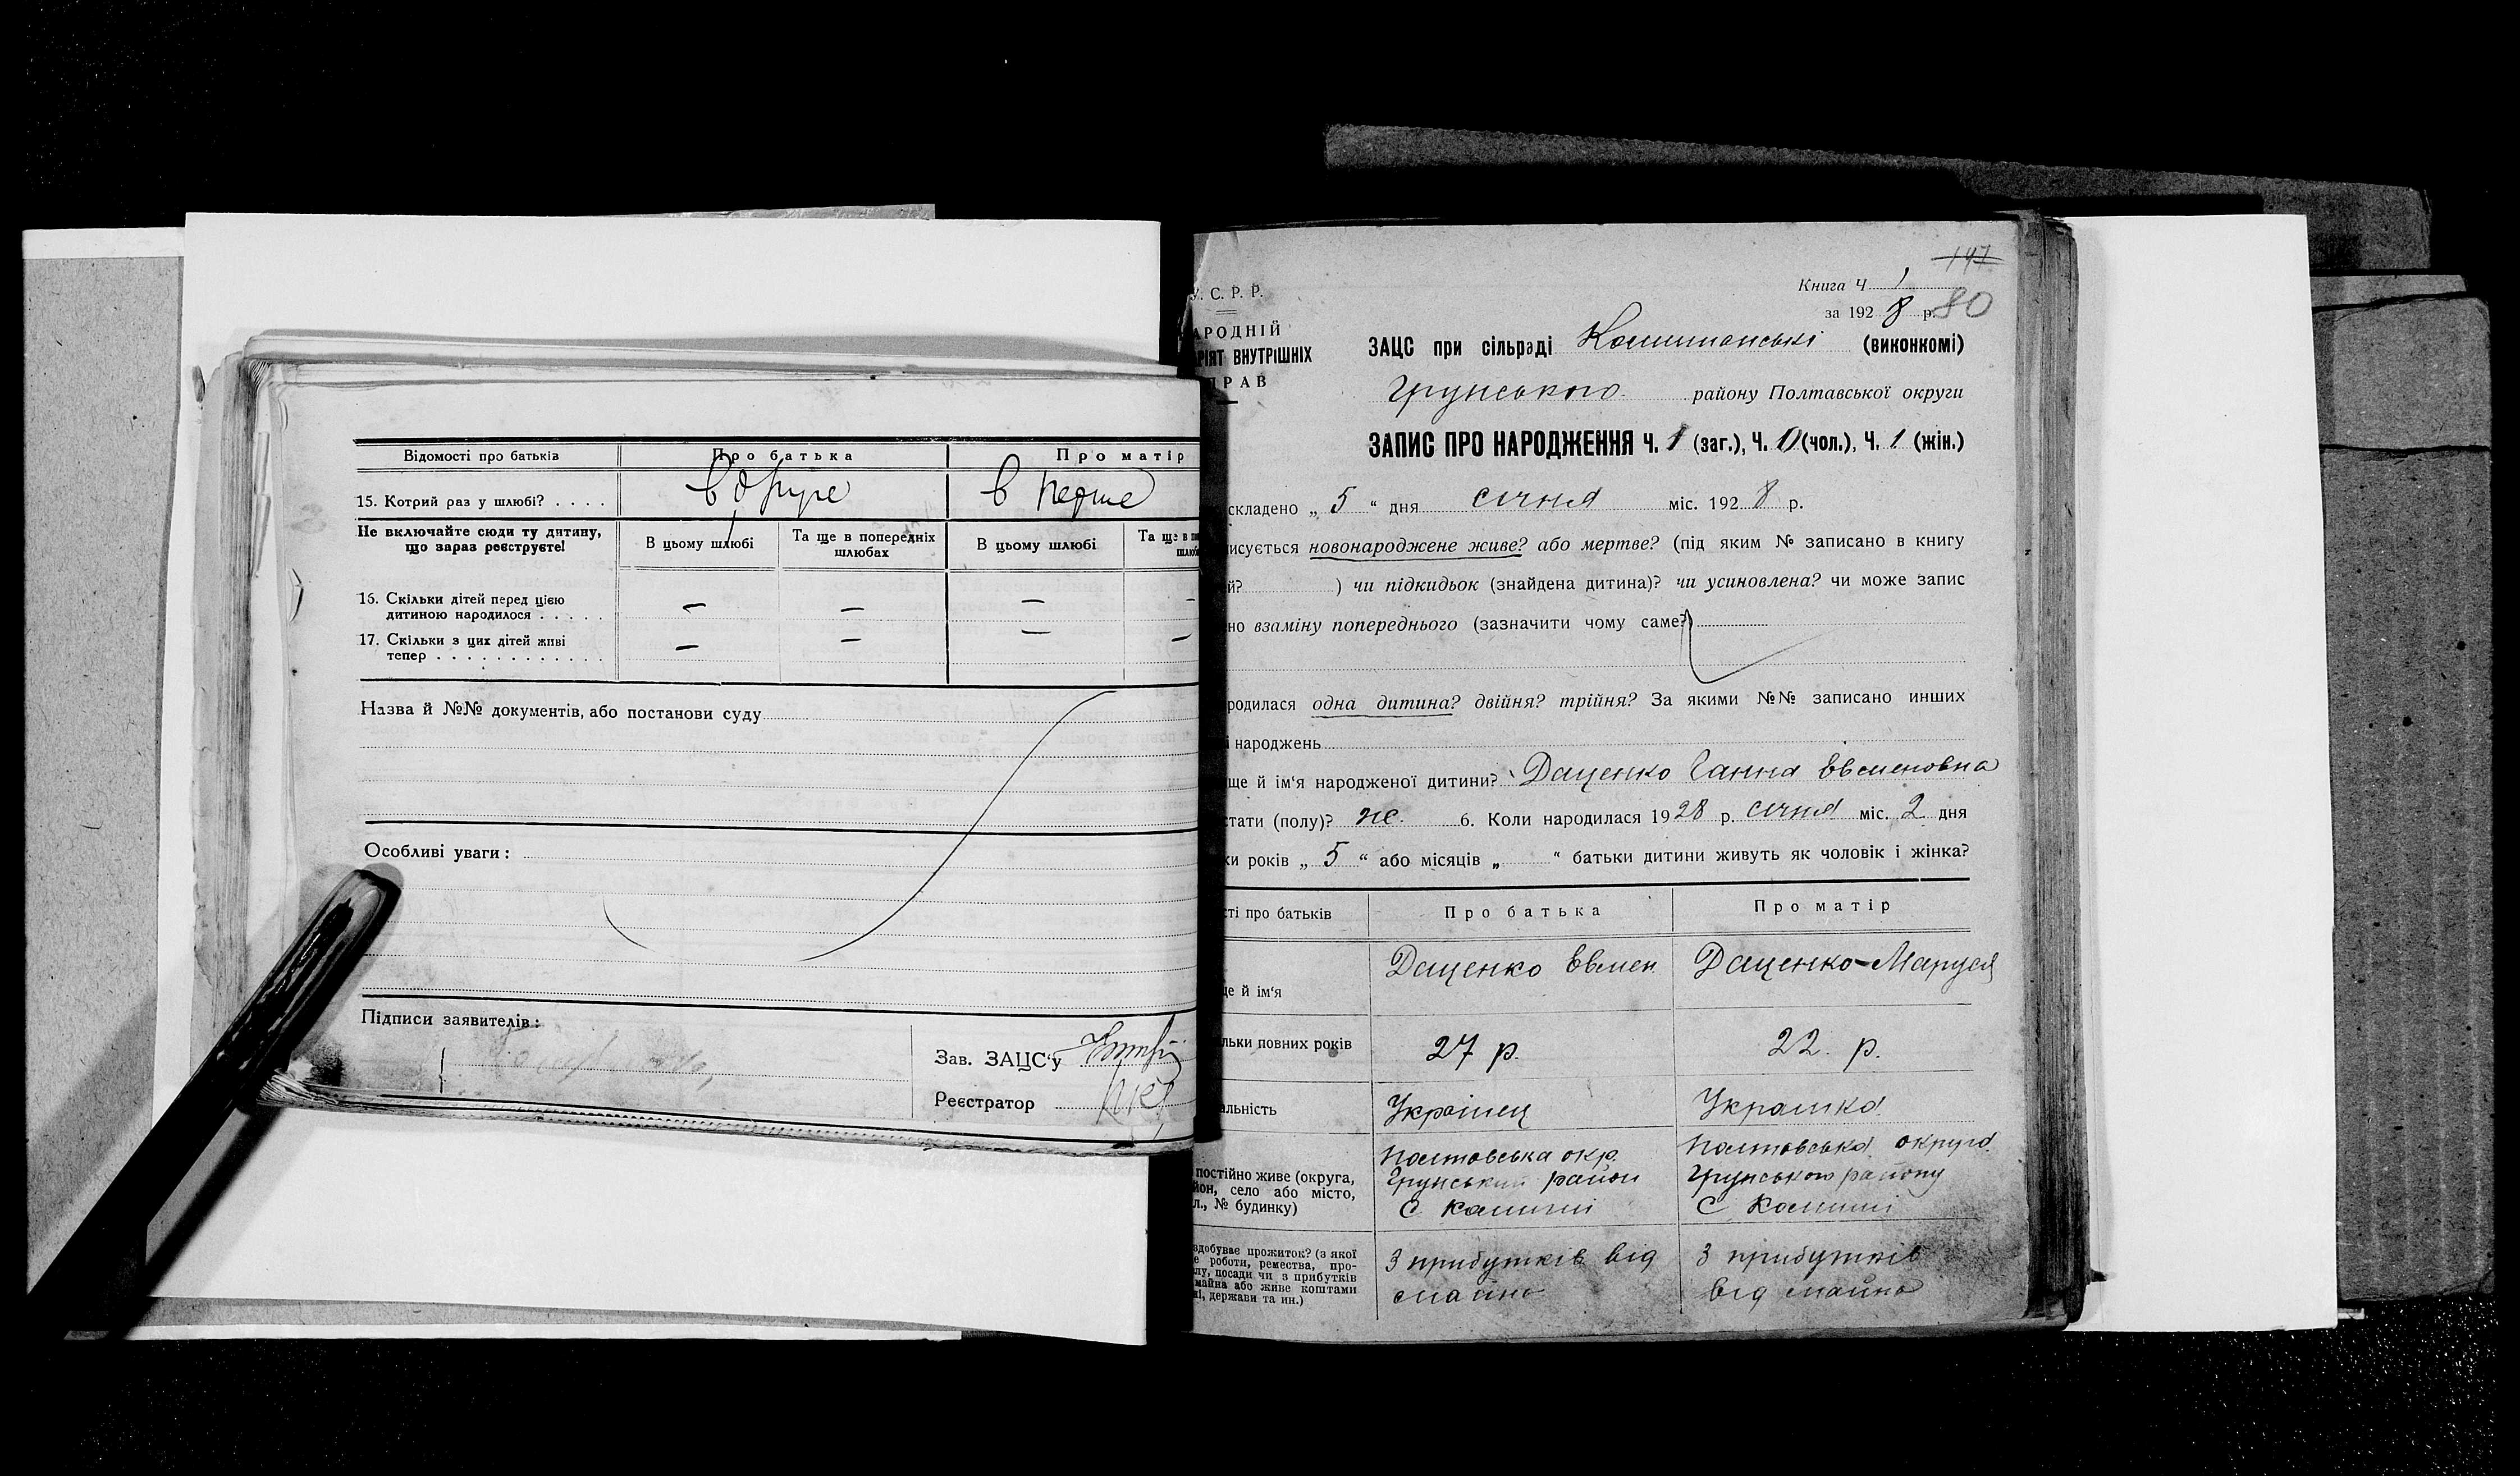 Відомості про батьків
Про батька
Про матір
15. Котрий раз у шлюбі? . . . .
в друге
в перше
Не включайте сюди ту дитину, що зараз реєструєте!
В цьому шлюбі
Та ще в попередніх шлюбах
В цьому шлюбі
Та ще в
16. Скільки дітей перед цією
дитиною народилося . . . . .
— — — —
17. Скільки з цих дітей живі
тепер . . . . . . . . . . . .
— — — —
Назва й №№ документів, або постанови суду
Особливі уваги:
Підписи заявителів:
Зав. ЗАЦС'у
Реєстратор
147
Книга Ч. 1
за 1928 р.
80
У. С. Р. Р.
АРОДНІЙ
РІЯТ ВНУТРІШНІХ
ПРАВ
ЗАЦС при сільраді (виконкомі)
Грунського району Полтавської округи
ЗАПИС ПРО НАРОДЖЕННЯ Ч. 1 (заг.), Ч. 0 (чол.), Ч. 1 (жін.)
складено „ 5 “ дня січня міс. 1928 р.
исується новонароджене живе? або мертве? (під яким № записано в книгу
й? ) чи підкидьок (знайдена дитина)? чи усиновлена? чи може запис
но взаміну попереднього (зазначити чому саме?)
родилася одна дитина? двійня? трійня? За якими №№ записано инших
і народжень
ще й ім'я народженої дитини? Даценко Ганна Евменовна
тати (полу)? ж. 6. Коли народилася 1928 р. січня міс. 2 дня
ки років „ 5 “ або місяців „ “ батьки дитини живуть як чоловік і жінка?
ті про батьків
Про батька
Про матір
ще й ім'я
Даценко Евмен
Даценко-Маруся
льки повних років
27 р.
22. р.
альність
Українець
Українка
постійно живе (округа,
йон, село або місто,
л., № будинку)
Полтовська окр.
Грунський район
Полтовська округа
Грунського району
здобуває прожиток? (з якої
е роботи, ремества, про-
лу, посади чи з прибутків
майна або живе коштами
ні, держави та ин.)
З прибутків від
майна
З прибутків
від майна